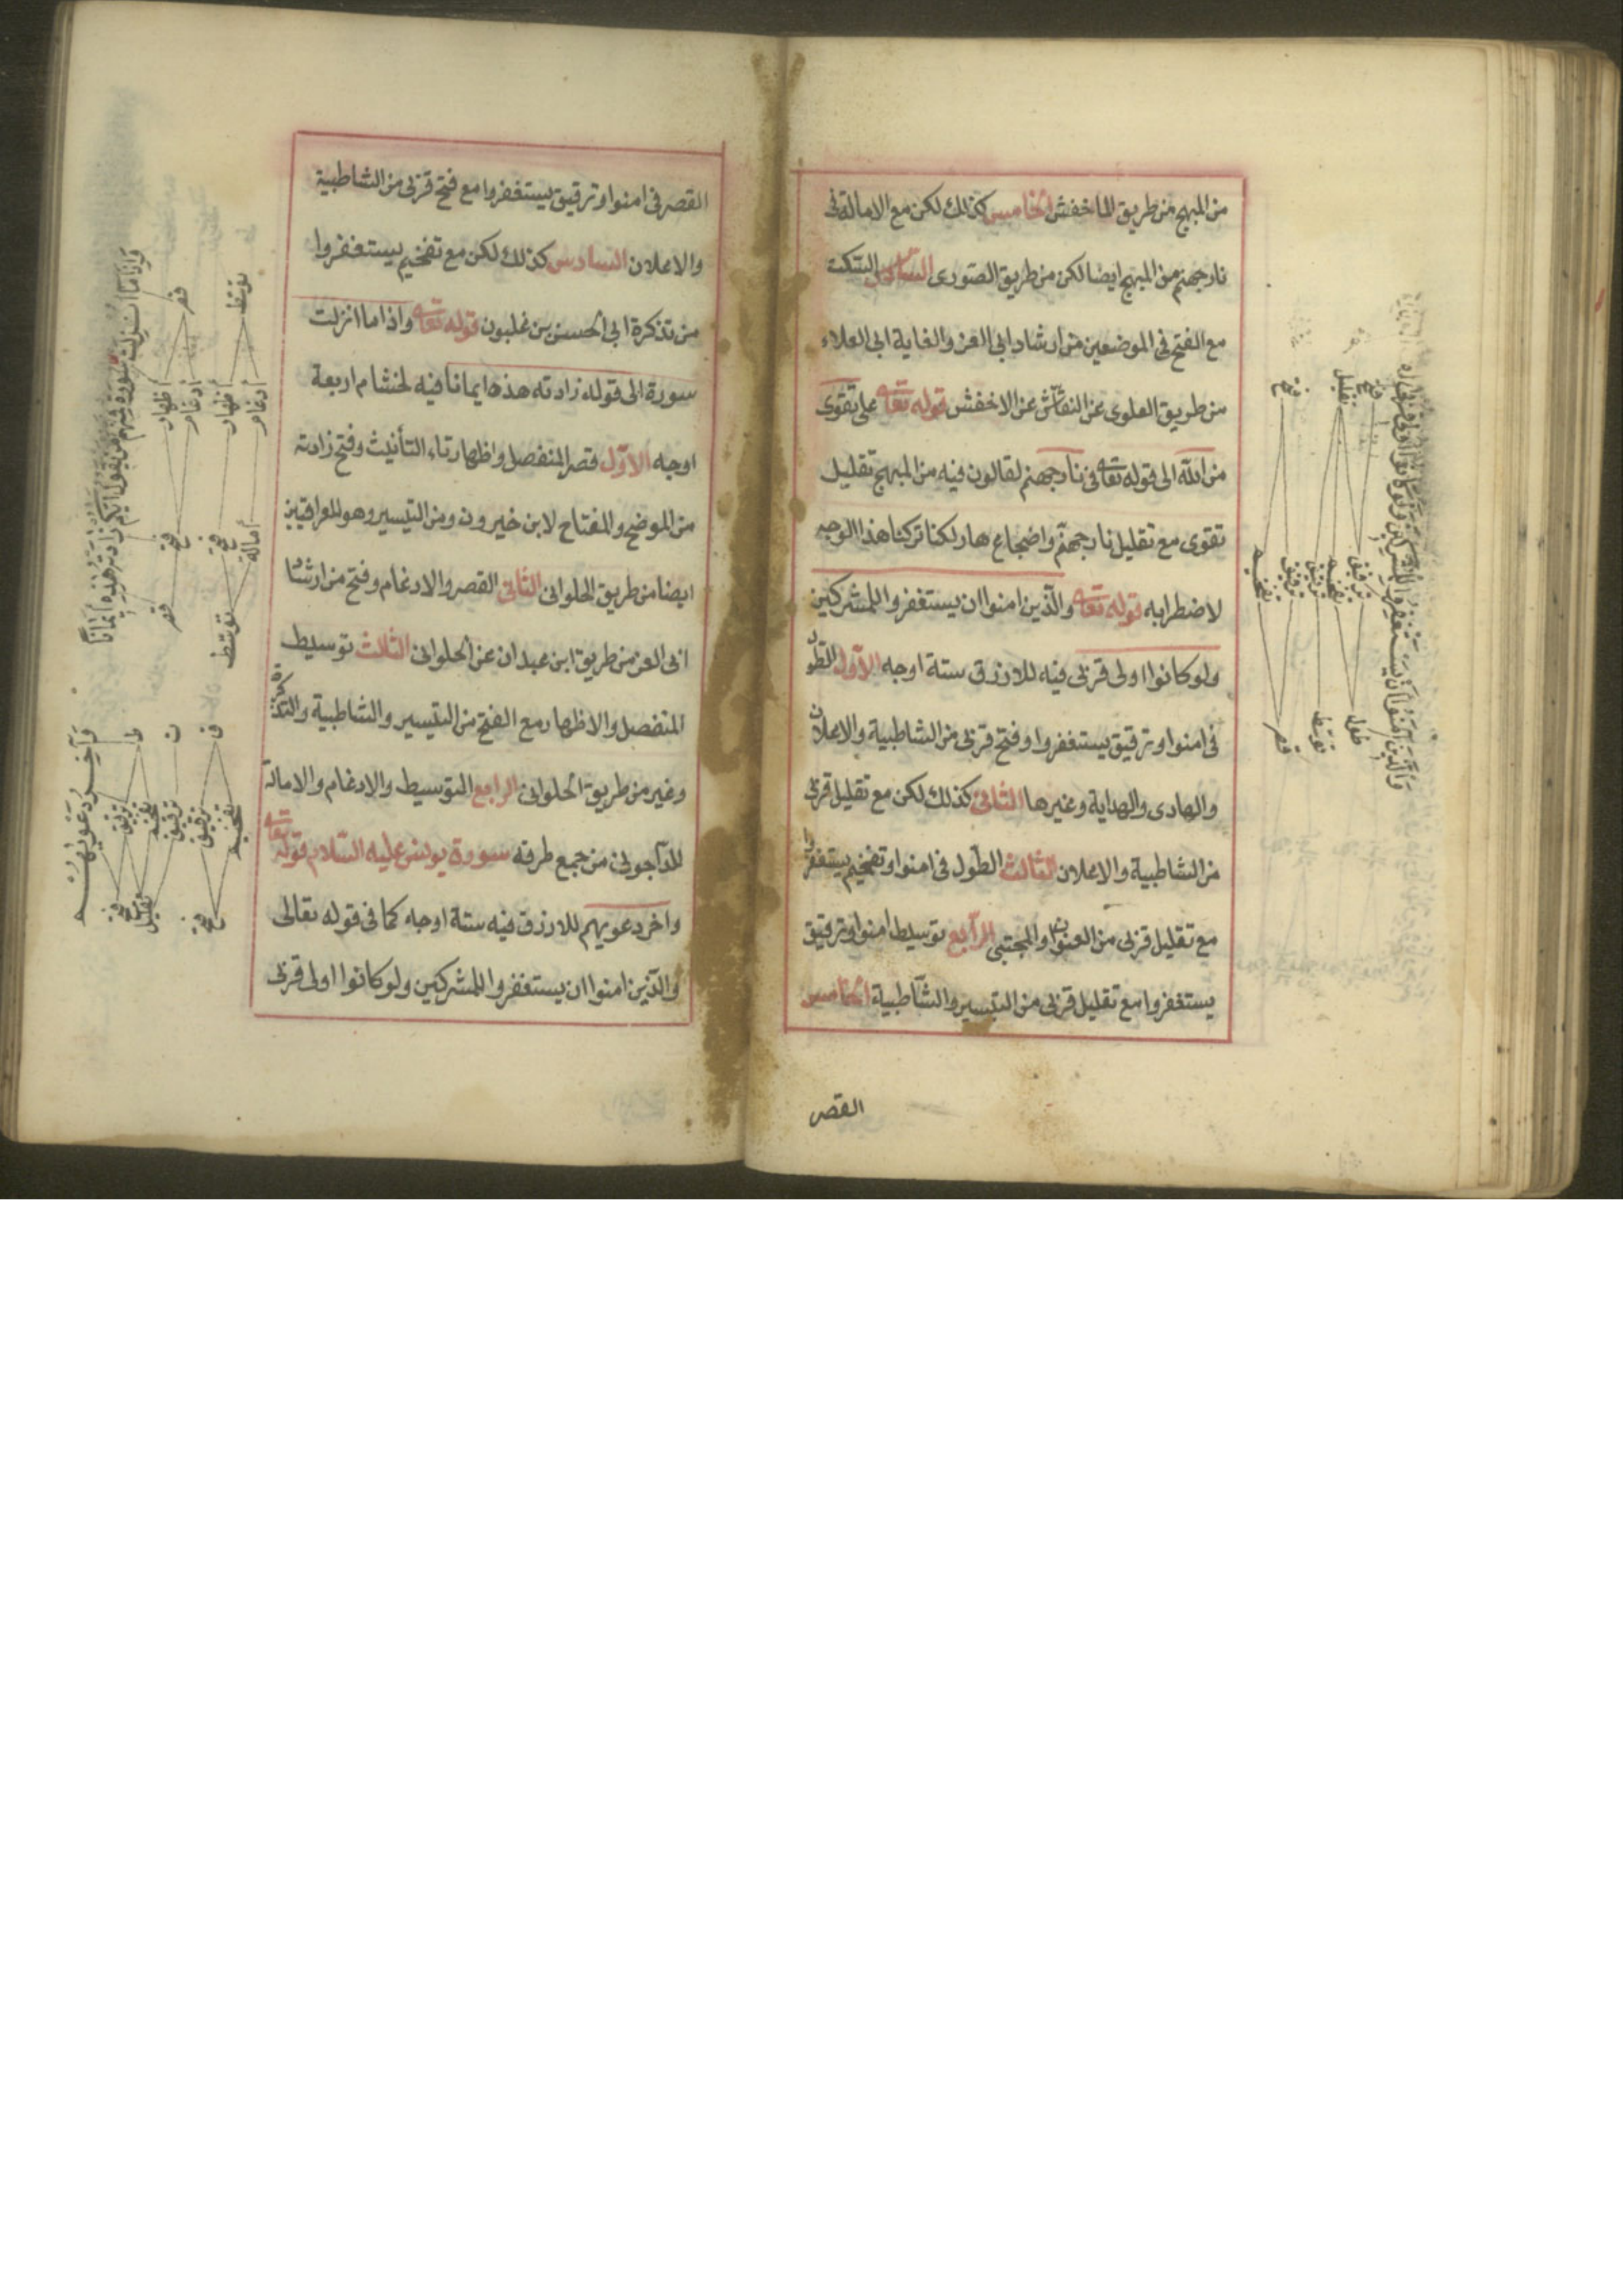 من المبهج من طريق الماخفش الخامس كذلك لكن مع الامالة فى
نار جهنم من المبهج ايضا لكن من طريق الصورى السادس السكت
مع الفتح فى الموضعين من ارشاد ابى العز والغاية ابى العلاء
من طريق العلوى عن النقاش عن الاخفش قوله تعا على تقوى
من الله الى قوله تعا فى نار جهنم لقالون فيه من المبهج تقليل
تقوى مع تقليل نار جهنم واضجاع هار لكنا تركنا هذا الوجه
لاضطرابه قوله تعا والذين امنوا ان يستغفروا للمشركين
ولو كانوا اولى قربى فيه للازرق ستة اوجه الاول الطول
فى امنوا وترقيق يستغفروا وفتح قربى من الشاطبية والاعلان
والهادى والهداية وغيرها الثانى كذلك لكن مع تقليل قربى
من الشاطبية والاعلان الثالث الطول فى امنوا وتفخيم يستغفروا
مع تقليل قربى من العنوان والمجتبى الرابع توسيط امنوا وترقيق
يستغفروا مع تقليل قربى من التيسير والشاطبية الخامس
القصر
والذين آمنوا ان يستغفروا للمشركين ولو كانوا اولى قربى
فتح
تقليل
فتح
ترقيق
تفخيم
ترقيق
ترقيق
تفخيم
طول
توسط
قصر
القصر فى امنوا وترقيق يستغفروا مع فتح قربى من الشاطبية
والاعلان السادس كذلك لكن مع تفخيم يستغفروا
من تذكرة ابى الحسن بن غلبون قوله تعا واذا ما انزلت
سورة الى قوله زادته هذه ايمانا فيه لهشام اربعة
اوجه الاول قصر المنفصل واظهار تاء التأنيث وفتح زادته
من الموضح والمفتاح لابن خيرون ومن التيسير وهو للعراقيين
ايضا من طريق الحلوانى الثانى القصر والادغام وفتح من ارشاد
ابى العز من طريق ابن عبدان عن الحلوانى الثالث توسيط
المنفصل والاظهار مع الفتح من التيسير والشاطبية والتذكرة
وغير من طريق الحلوانى الرابع التوسيط والادغام والامالة
للداجونى من جمع طرقه سورة يونس عليه السلام قوله تعا
واخر دعويهم للازرق فيه ستة اوجه كما فى قوله تعالى
والذين امنوا ان يستغفروا للمشركين ولو كانوا اولى قربى
واذا ما انزلت سورة فمنهم من يقول ايكم زادته هذه ايمانا
قصر
توسط
اظهار
ادغام
اظهار
ادغام
فتح
فتح
امالة
قصر
توسط
وآخر دعويهم
ط
ت
ق
ترقيق
تفخيم
ترقيق
ترقيق
تفخيم
فتح
تقليل
فتح